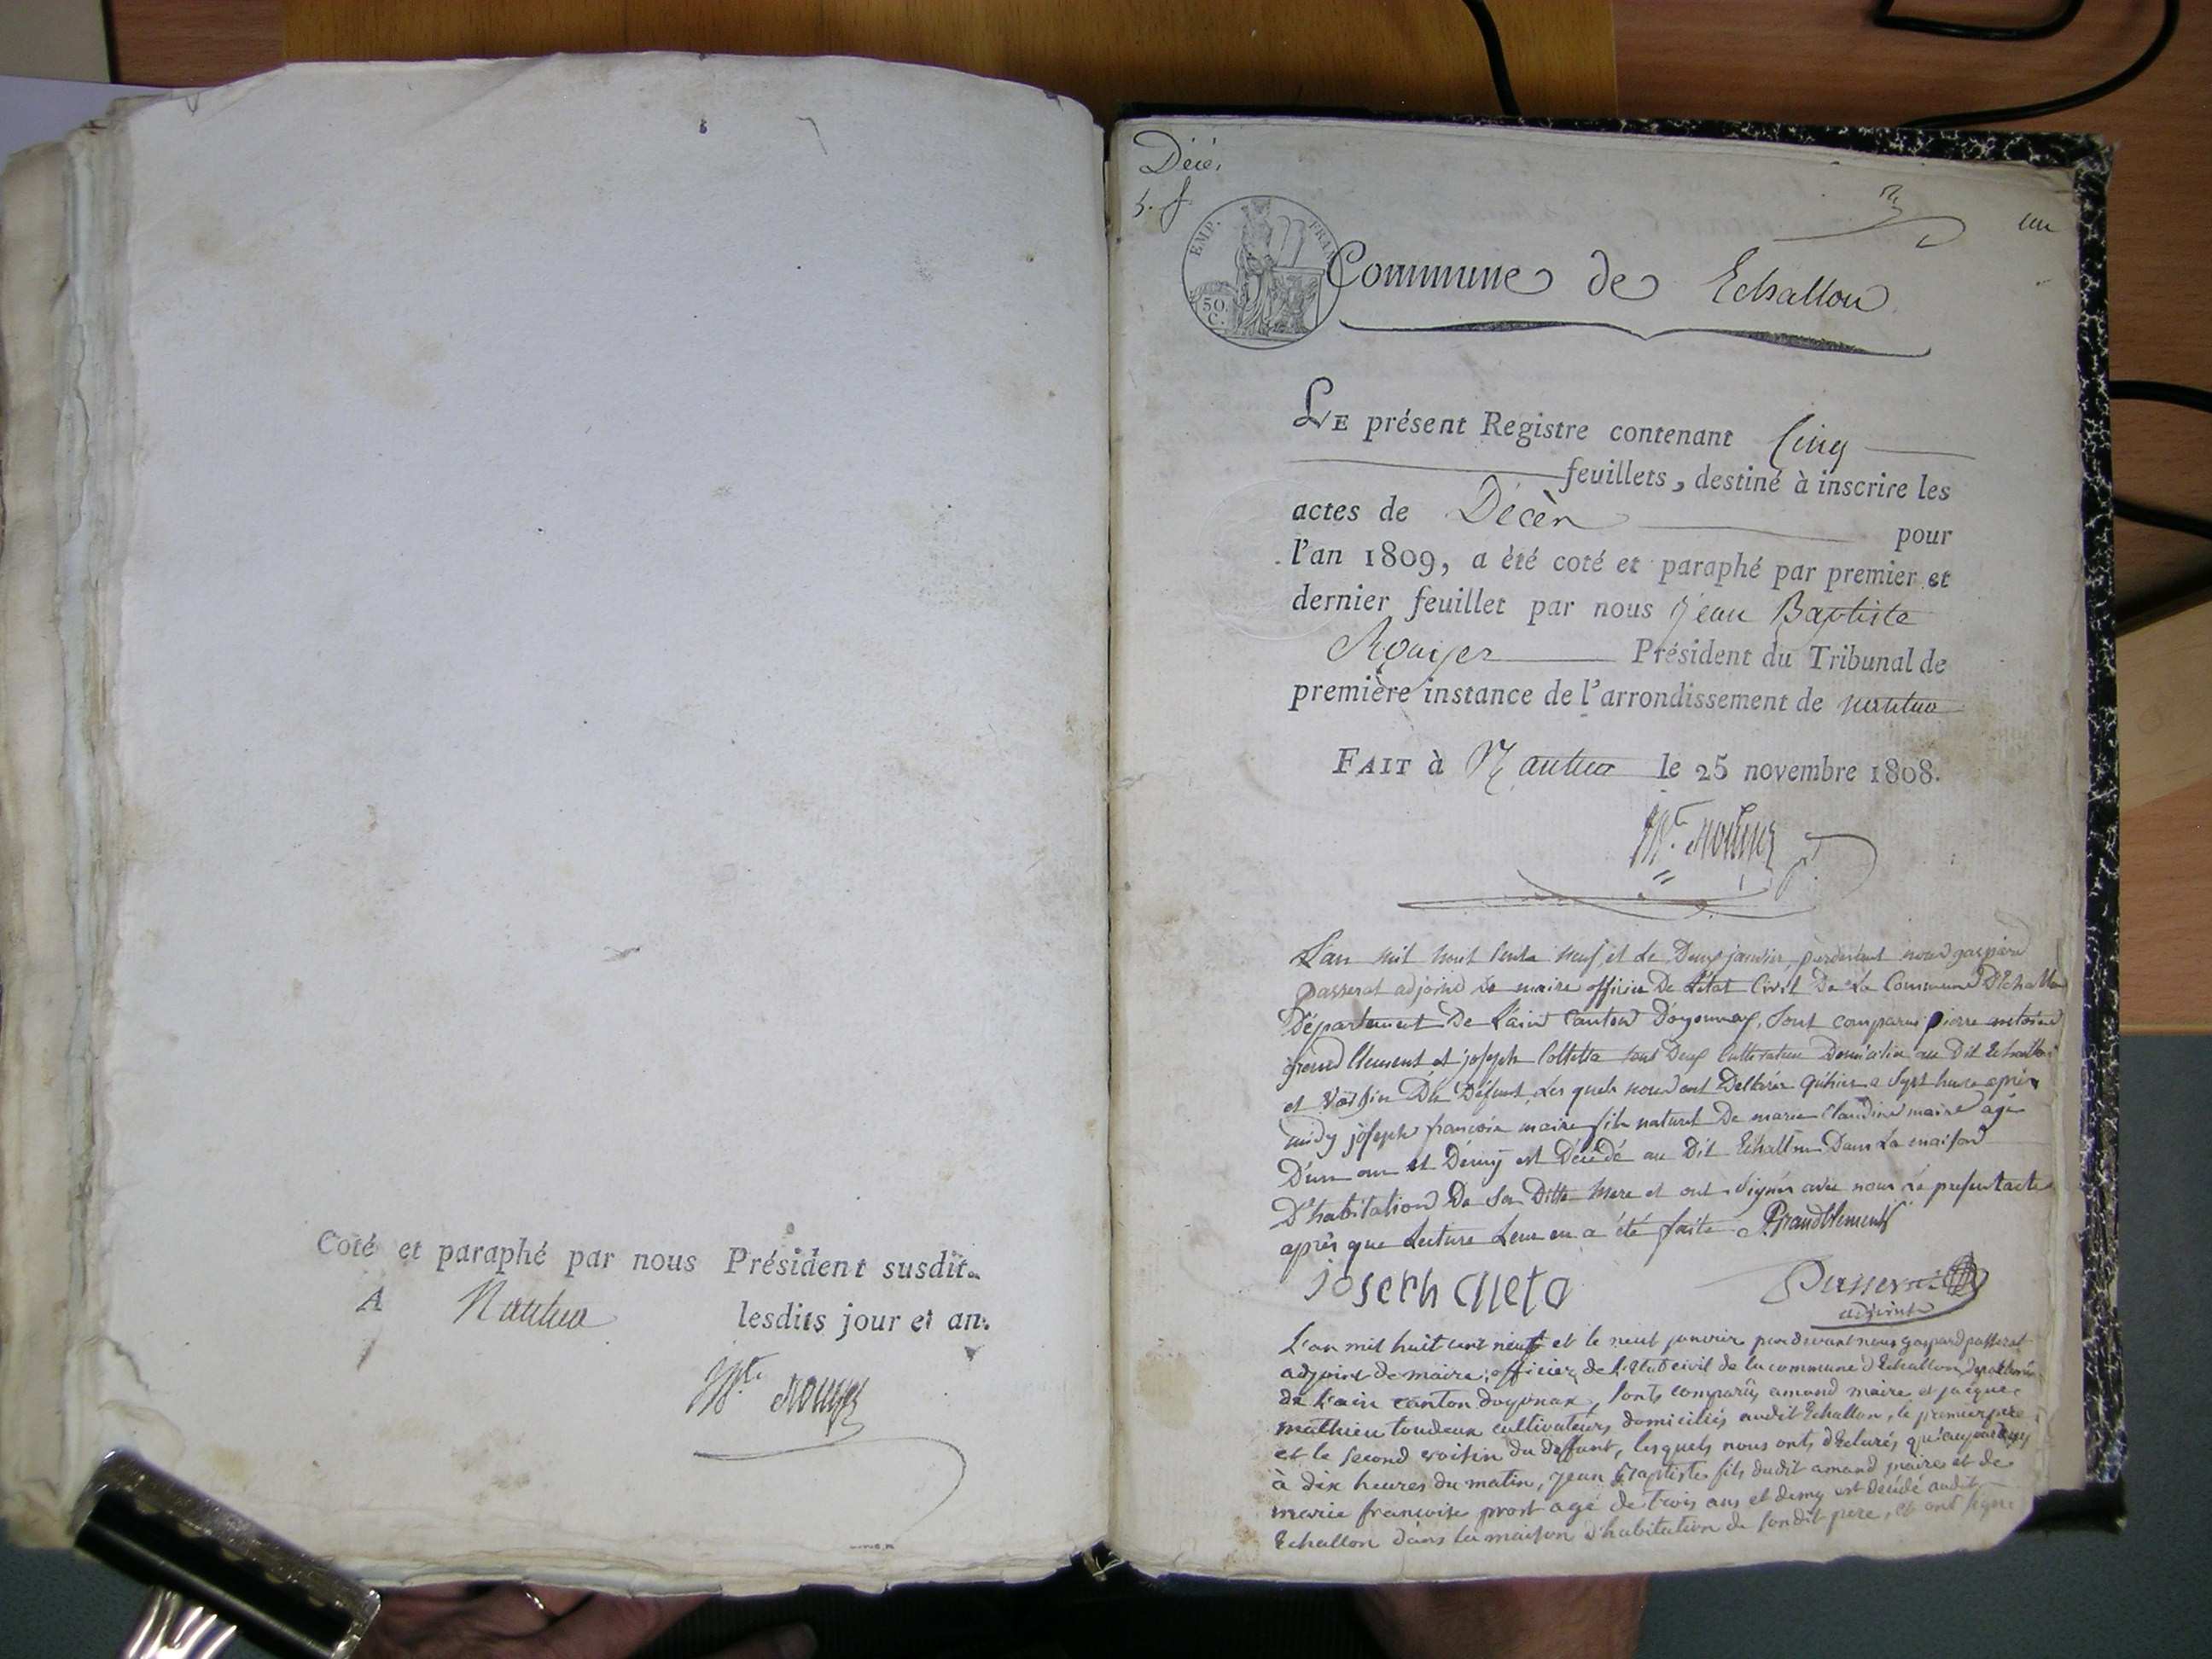 Coté et paraphé par nous Président susdit.
A Nantua lesdits jour et an.
Décès
5. f
un
EMP. FRAN
50
C.
Commune de Echallon
LE présent Registre contenant Cinq
feuillets, destiné à inscrire les
actes de Décès pour
l'an 1809, a été coté et paraphé par premier et
dernier feuillet par nous Jean Baptiste
Rouyer Président du Tribunal de
première instance de l'arrondissement de nantua
FAIT à Nantua le 25 novembre 1808.
L'an mil huit cents neuf et le Deux janvier, pardevant nous gaspard
passerat adjoint de maire officier De l'état Civil De la Commune D'Echallon
Département De L'ain Canton Doyonnax, sont comparus pierre antoine
grand Clement et joseph Colletta tous Deux Cultivateurs Domiciliés au Dit Echallon
et Voisins Du Défunt, Les quels nous ont Délaré qu'hier a Sept heures après
midy joseph françois maire fils naturel De marie Claudine maire agé
D'un an et Demy est Décédé au Dit Echallon Dans La maison
D'habitation De Sa Ditte Mere et ont signés avec nous Le present acte
après que Lecture Leur en a été faite PGrandClement
joseph
Passerat
adjoint
L'an mil huit cent neuf et le neuf janvier pardevant nous gaspard passerat
adjoint de maire, officier de l'état civil de la commune d'Echallon département
de l'ain canton doyonax, sonts comparûs amand maire et jacque
mathieu tondeux cultivateurs domiciliés audit Echallon, le premier pere
et le second voisin du deffunt, lesquels nous onts déclarés qu'aujourd'huy
à dix heures du matin, jean Baptiste fils dudit amand maire et de
marie francoise prost agé de trois ans et demy est décédé audit
Echallon dans la maison d'habitation de sondit pere, et ont signé